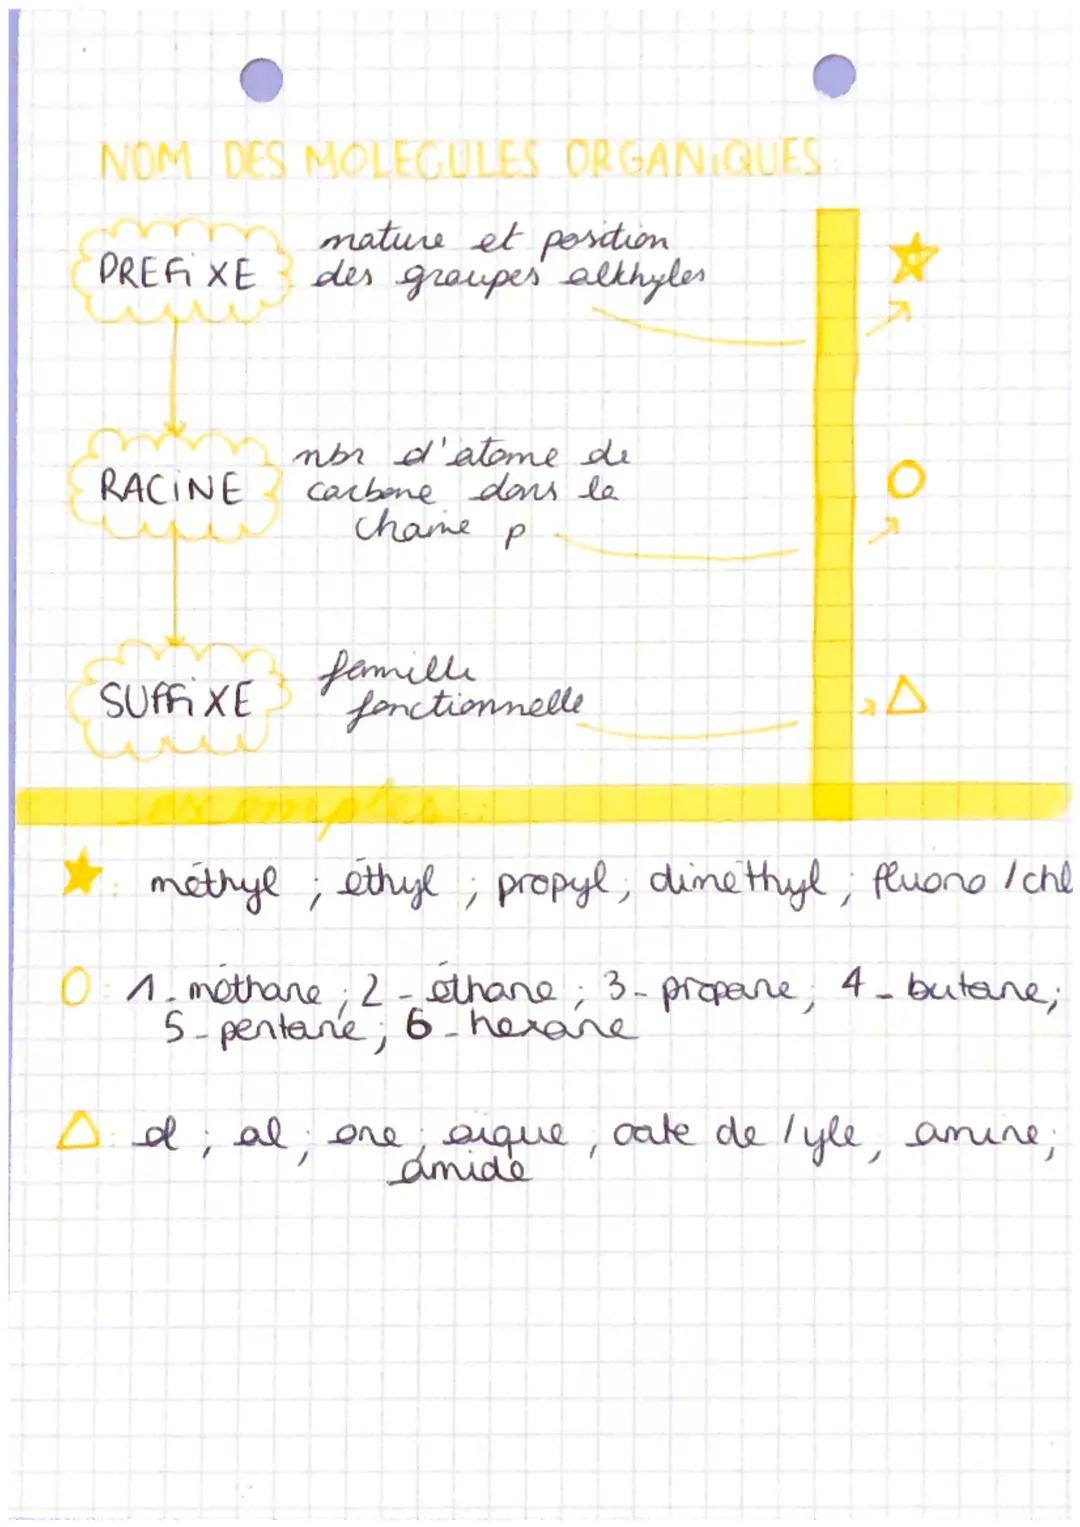 NOM DES MOLECULES ORGANIQUES
PREFiXE
nature et position
des groupes alkhyles
RACiNE
nbr d'atome de
carbone dans la
chaine p
SUFFiXE
famille
fonctionnelle
exemples
: méthyl ; éthyl ; propyl ; diméthyl ; fluoro / chl
: 1-méthane ; 2-éthane ; 3-propane ; 4-butane ;
5-pentane ; 6-hexane
: ol ; al ; one ; oique ; oate de / yle ; amine ;
amide